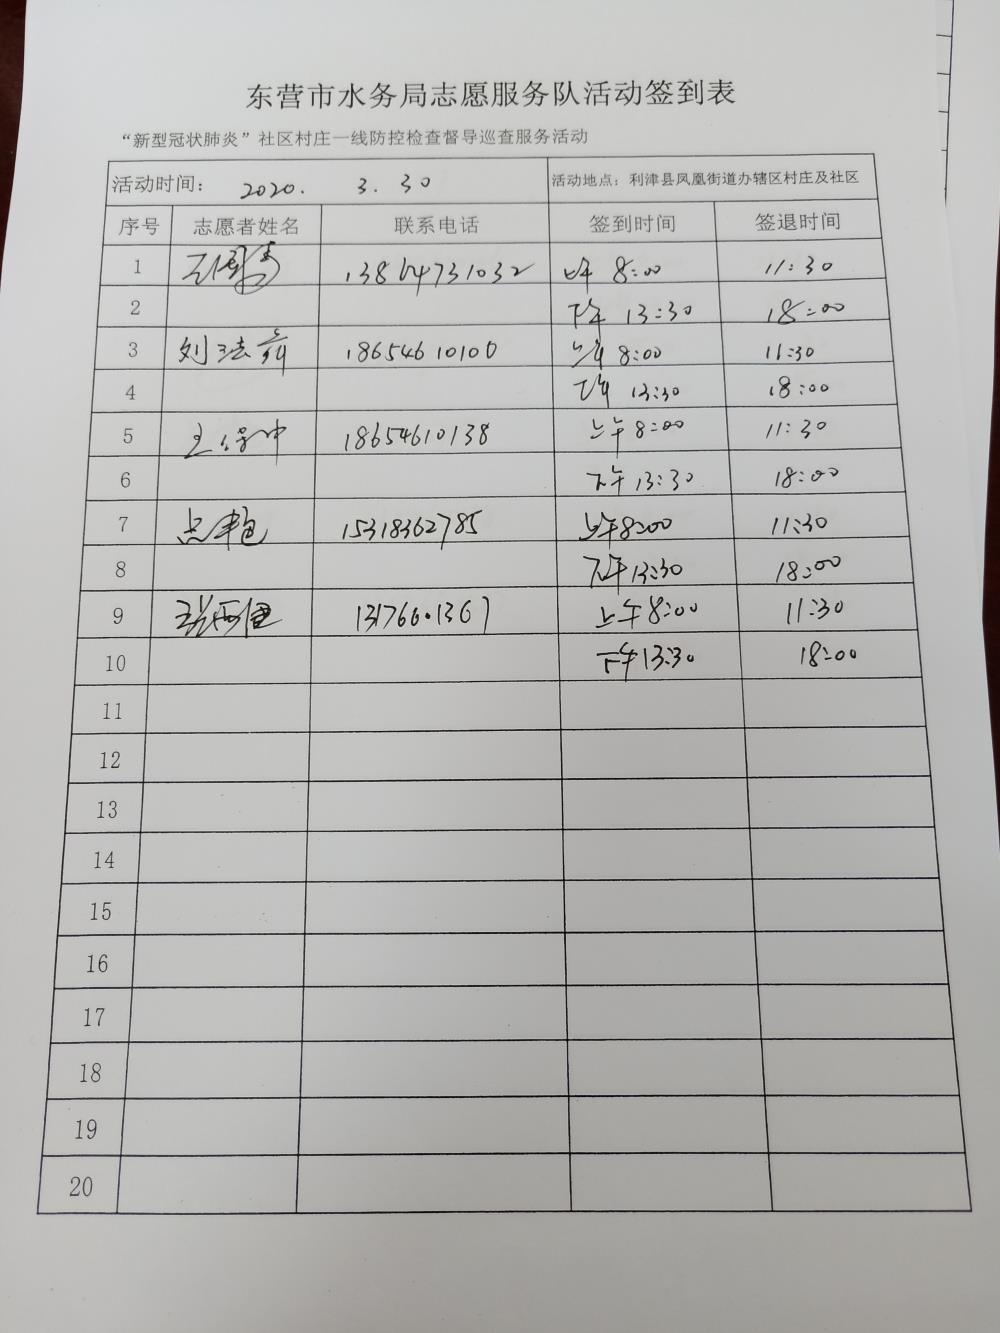 东营市水务局志愿服务队活动签到表
“新型冠状肺炎”社区村庄一线防控检查督导巡查服务活动
活动时间： 2020. 3. 30 活动地点：利津县凤凰街道办辖区村庄及社区
序号 志愿者姓名 联系电话 签到时间 签退时间
1 13864731032 上午 8:00 11:30
2 下午 13:30 18:00
3 刘 18654610100 上午 8:00 11:30
4 下午 13:30 18:00
5 王保中 18654610138 上午 8:00 11:30
6 下午 13:30 18:00
7 15318362785 上午 8:00 11:30
8 下午 13:30 18:00
9 13176601367 上午 8:00 11:30
10 下午 13:30 18:00
11
12
13
14
15
16
17
18
19
20